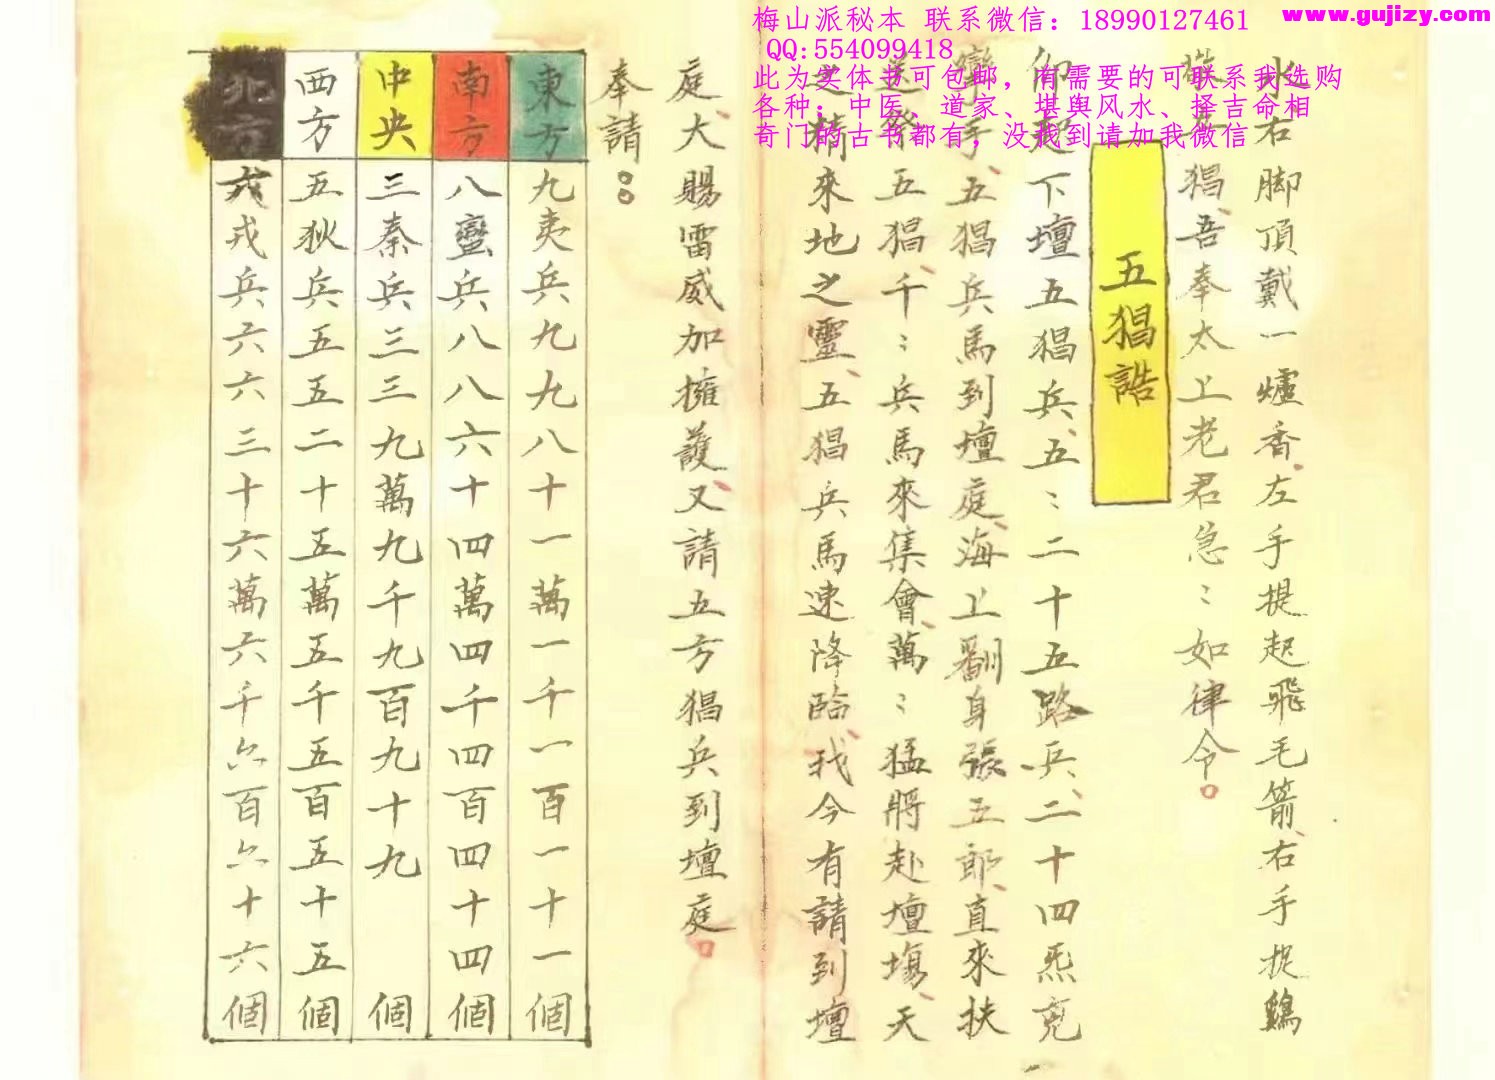 梅山派秘本 联系微信：18990127461
QQ:554099418
www.gujizy.com
此为实体书可包邮，有需要的可联系我选购
各种：中医、道家、堪舆风水、择吉命相
奇门的古书都有，没找到请加我微信
水右脚頂戴一爐香、左手提起飛毛箭、右手捉鷄
猖、吾奉太上老君急：如律令。
五猖誥
仰起下壇五猖兵、五：二十五路兵、二十四炁
手、五猖兵馬到壇庭、海上翻身張五郎、直來扶
五猖千：兵馬來集會、萬：猛將赴壇場、天
之精來地之靈、五猖兵馬速降臨、我今有請到壇
庭、大賜雷威加擁護、又請五方猖兵到壇庭。
奉請：
東方 九夷兵九九八十一萬一千一百一十一個
南方 八蠻兵八八六十四萬四千四百四十四個
中央 三秦兵三三九萬九千九百九十九個
西方 五狄兵五五二十五萬五千五百五十五個
北方 六戎兵六六三十六萬六千六百六十六個